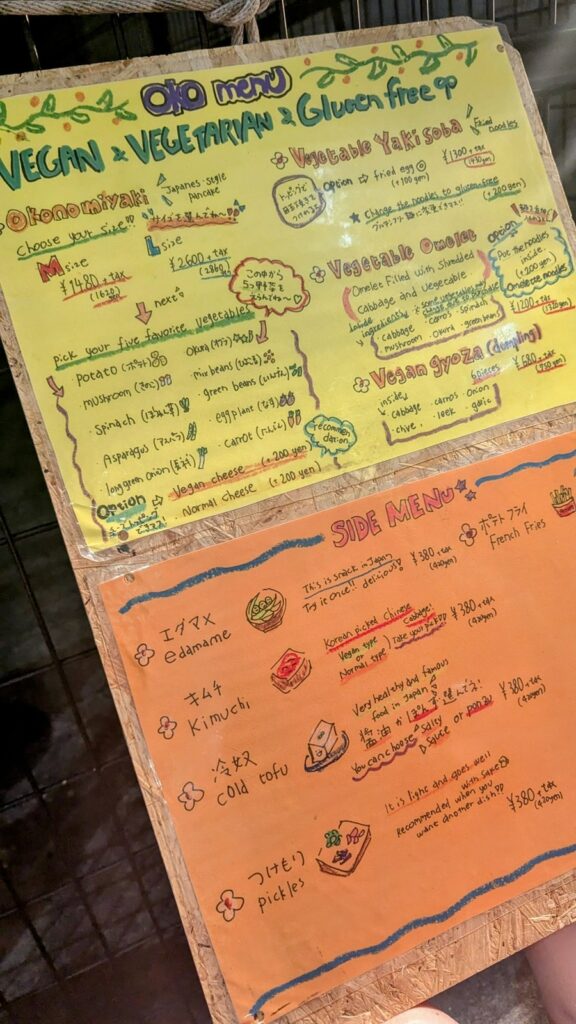 OKO menu
VEGAN & VEGETARIAN & Gluten free
Okonomiyaki
Japanes-style
pancake
choose your size!!
サイズを選んでね〜
M size
¥1480+tax
(1628)
L size
¥2600+tax
(2860)
next
この中から
5つ野菜を
えらんでね〜
pick your five favorite vegetables
potato (ポテト)
mushroom (きのこ)
spinach (ほうれん草)
Asparagus (アスパラ)
long green onion (長ネギ)
Okura (オクラ)
mix beans (ひよこ豆)
green beans (いんげん)
egg plant (なす)
carot (にんじん)
recommen
dation
Option
Vegan cheese (+200 yen)
Normal cheese (+200 yen)
Vegetable Yakisoba
Fried
noodles
¥1300+tax
(1430yen)
Option ⇨ fried egg
(+100 yen)
★ Change the noodles to gluten free
(+200 yen)
Vegetable Omelet
Omelet Filled with Shredded
cabbage and vegetable
inside
ingredients
cabbage · carros · spinach
mushroom · okura · green beans
Option
Put the noodles
inside.
(+200 yen)
Omelette noodles
¥1200+tax
(1320yen)
Vegan gyoza (dumpling)
6pieces ¥680+tax
(750 yen)
inside
· cabbage · carros · onion
· chive · leek · garlic
SIDE MENU
エダマメ
edamame
This is snack in Japan
Try it once!! delicious!
¥380+tax
(420yen)
ポテトフライ
French Fries
キムチ
Kimuchi
Korean picked Chinese
cabbage!
Vegan type
or
Normal type
Take your pick
¥380+tax
(420yen)
冷奴
cold tofu
Very healthy and famous
food in Japan
醤油かぽん酢選んでネ!
You can choose Salty or ponzu
sauce
¥380+tax
(420yen)
つけもり
pickles
It is light and goes well
with sake
Recommended when you
want another dish??
¥380+tax
(420yen)